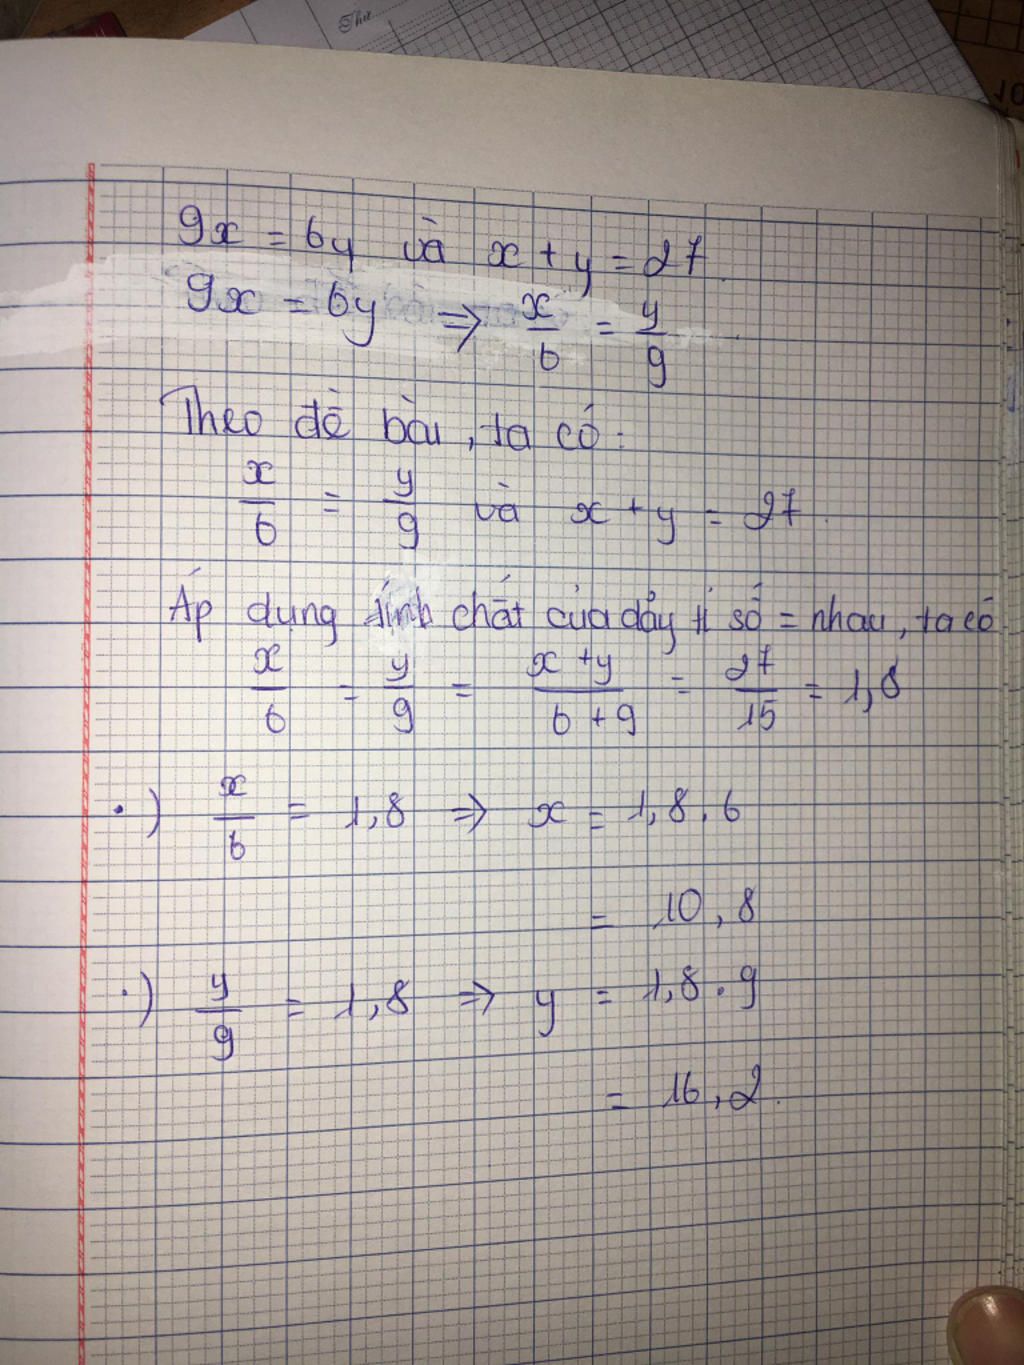 Thứ
10
9x = 6y và x + y = 27.
9x = 6y => x/6 = y/9.
Theo đề bài, ta có:
x/6 = y/9 và x + y = 27.
Áp dụng tính chất của dảy tỉ số = nhau, ta có
x/6 = y/9 = x + y/6 + 9 = 27/15 = 1,8
.) x/6 = 1,8 => x = 1,8 . 6
= 10,8
.) y/9 = 1,8 => y = 1,8 . 9
= 16,2.